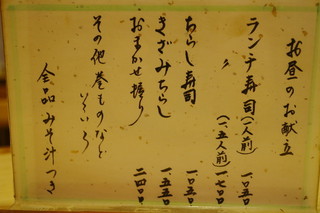 お昼のお献立
ランチ寿司(一人前) 一、〇五〇
〃 (一、五人前) 一、七〇〇
ちらし寿司 一、〇五〇
きざみちらし 一、五五〇
おまかせ握り 二、四〇〇
その他巻ものなど
いろいろ
全品みそ汁つき